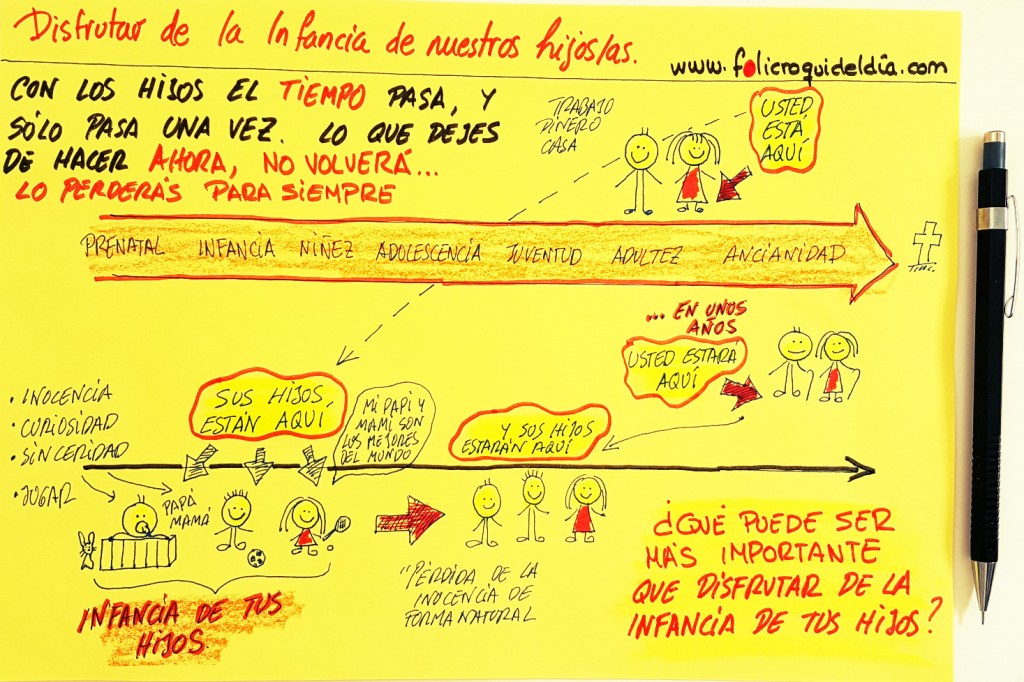 Disfrutar de la Infancia de nuestros hijos/as.
www.folicroquideldía.com
CON LOS HIJOS EL TIEMPO PASA, Y
SÓLO PASA UNA VEZ. LO QUE DEJES
DE HACER AHORA, NO VOLVERÁ...
LO PERDERÁS PARA SIEMPRE
TRABAJO
DINERO
CASA
USTED
ESTÁ
AQUÍ
PRENATAL INFANCIA NIÑEZ ADOLESCENCIA JUVENTUD ADULTEZ ANCIANIDAD
... EN UNOS
AÑOS
USTED ESTARÁ
AQUÍ
· INOCENCIA
· CURIOSIDAD
· SINCERIDAD
· JUGAR
SUS HIJOS
ESTÁN AQUÍ
MI PAPI Y
MAMI SON
LOS MEJORES
DEL MUNDO
Y SUS HIJOS
ESTARÁN AQUÍ
PAPÁ
MAMÁ
INFANCIA DE TUS
HIJOS
"PÉRDIDA DE LA
INOCENCIA DE
FORMA NATURAL
¿QUÉ PUEDE SER
MÁS IMPORTANTE
QUE DISFRUTAR DE LA
INFANCIA DE TUS HIJOS?